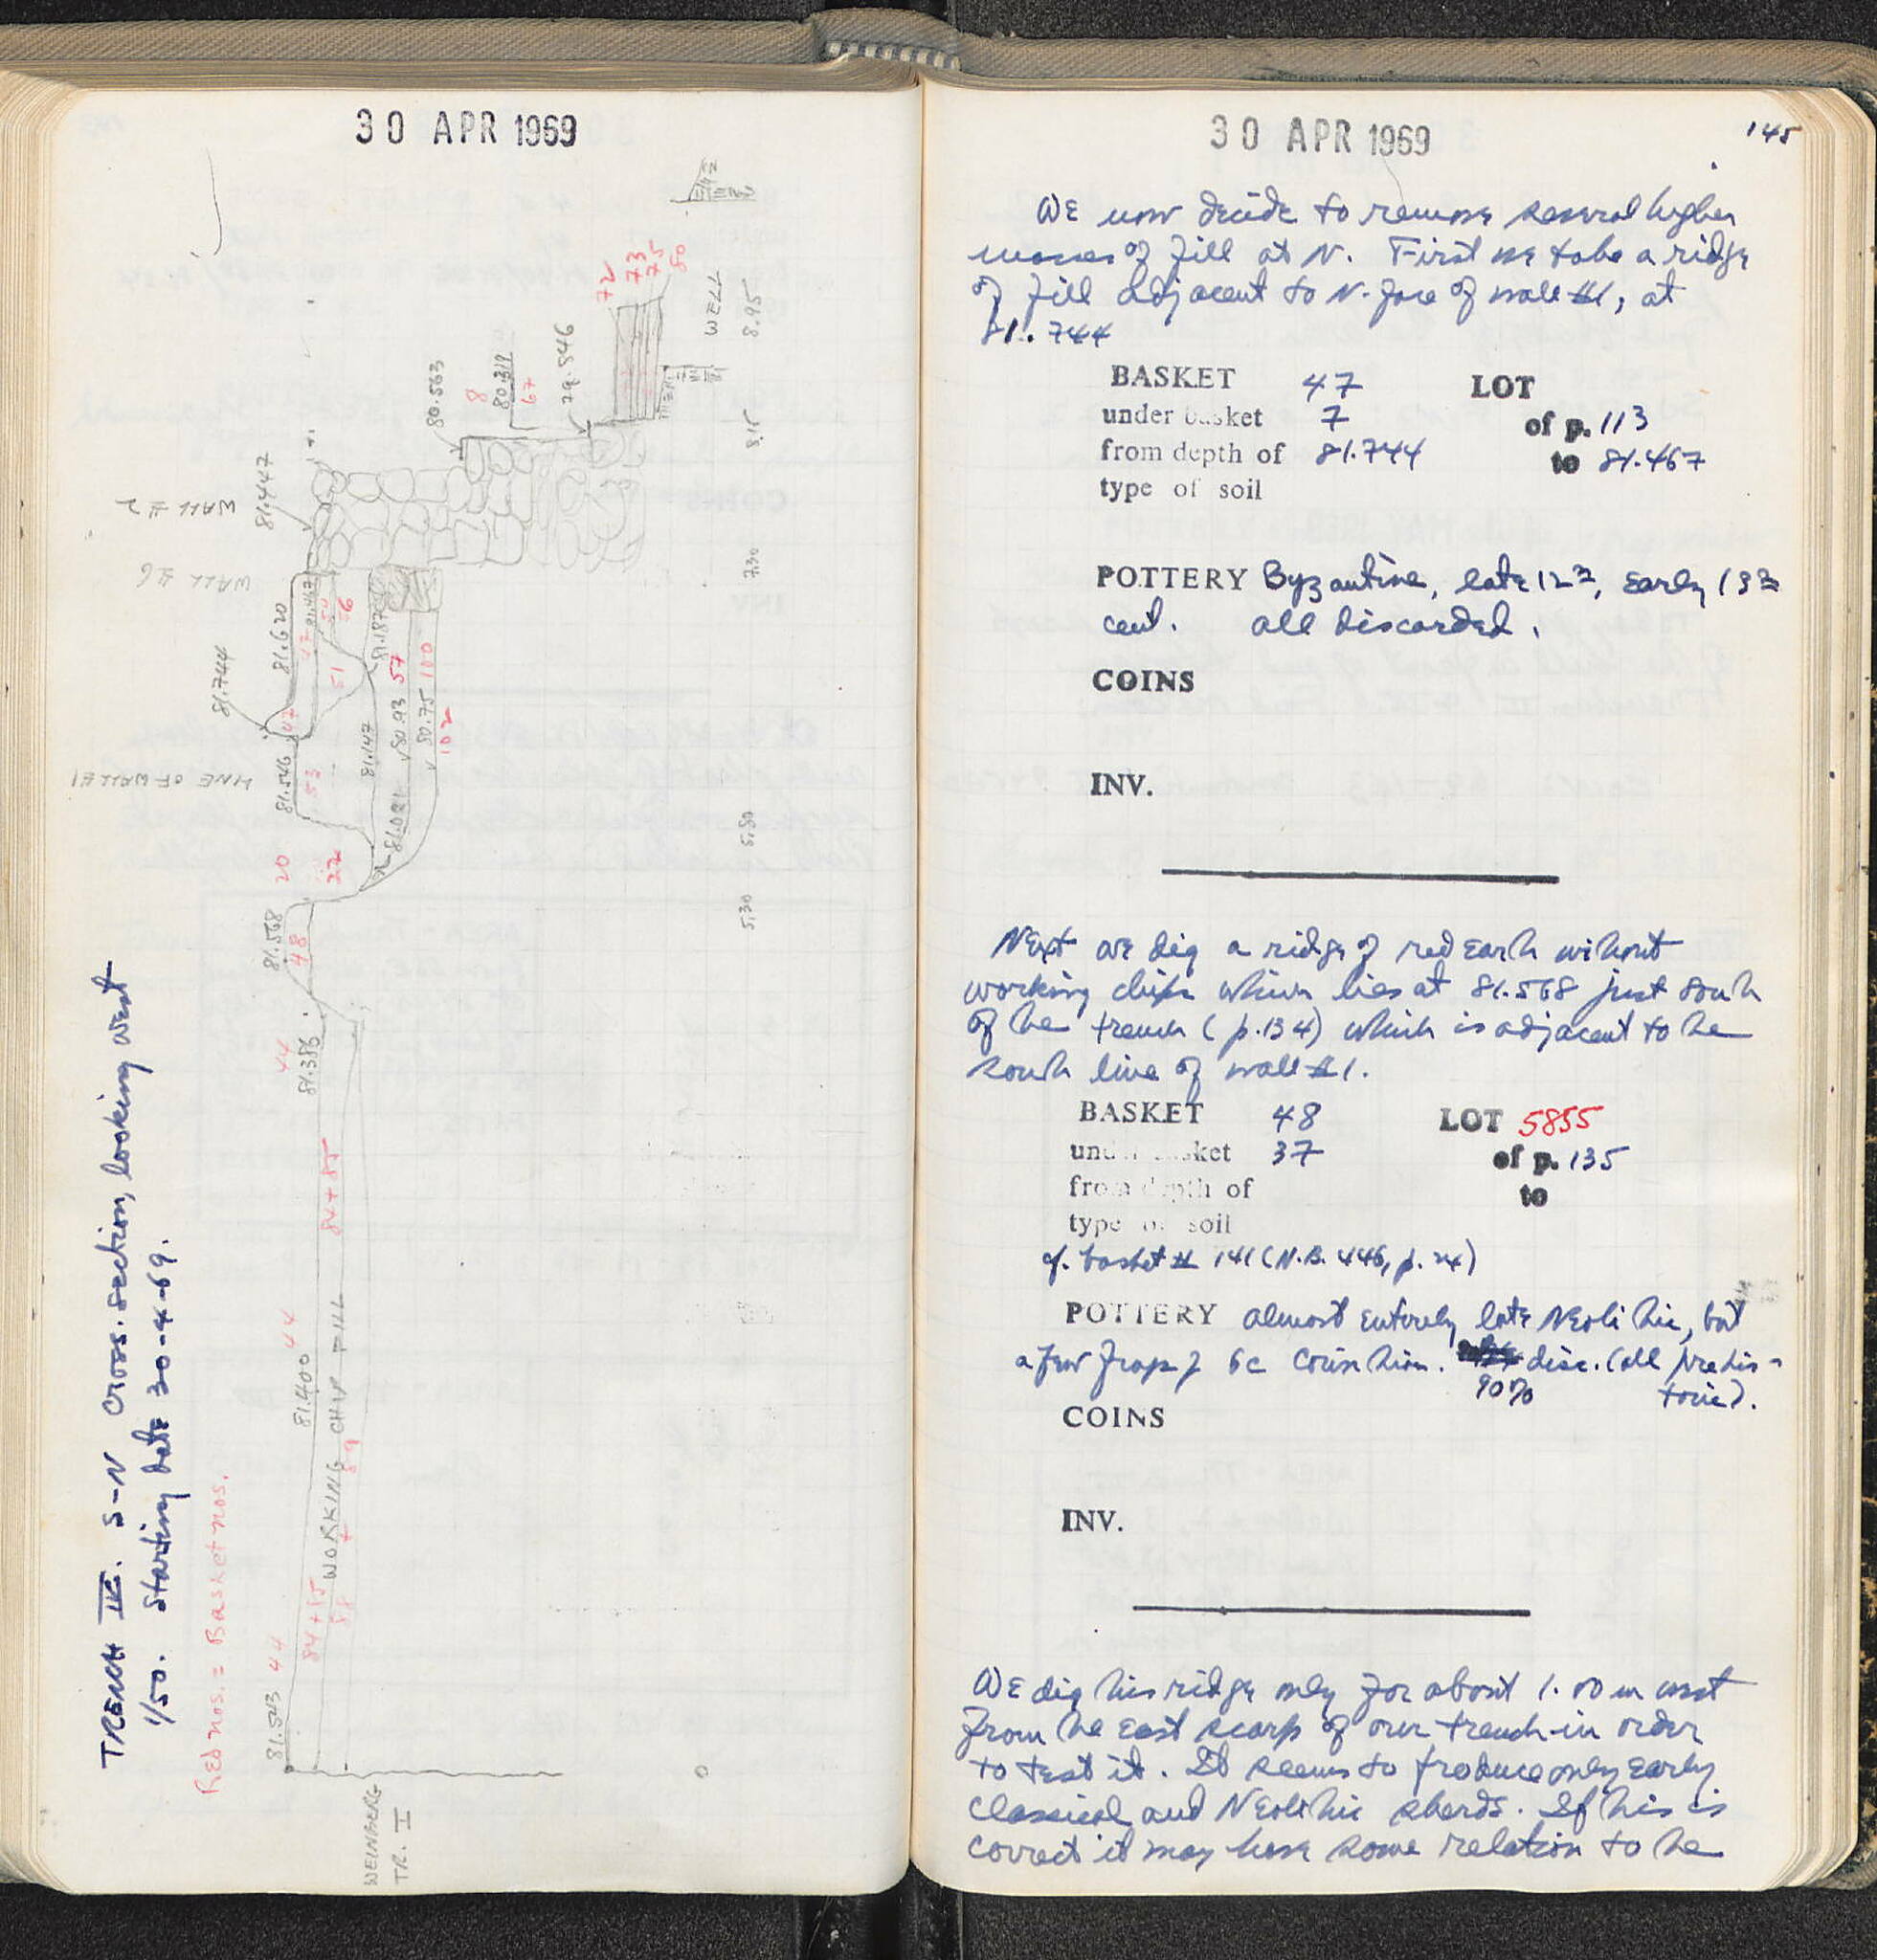 30 APR 1969
TRENCH IV. S-N Cross-section, looking west
1/50. Starting date 30-4-69.
Red nos. = Basket nos.
WALL #2
81.447
WALL #6
81.744
81.620
81.467
47
50
56
51
81.187
57
100
LINE OF WALL #1
81.546
47
53
81.147
81.021
80.93
80.75
102
20
22
81.568
48
44
81.386
84+85
44
81.400
WORKING CHIP FILL
89
84+85
88
81.543 44
WEINBERG
TR. I
80.563
8
80.319
67
79.846
72
73
75
80
WELL
8.95
8.15
7.30
5.80
5.30
0
30 APR 1969
145
We now decide to remove several higher
masses of fill at N. First we take a ridge
of fill adjacent to N. face of wall #1, at
81.744
BASKET 47 LOT
under basket 7 of p. 113
from depth of 81.744 to 81.467
type of soil
POTTERY Byzantine, late 12th, early 13th
cent. all discarded.
COINS
INV.
Next we dig a ridge of red earth without
working chips which lies at 81.568 just south
of the trench (p.134) which is adjacent to the
south line of wall #1.
BASKET 48 LOT 5855
under basket 37 of p. 135
from depth of to
type of soil
cf. basket # 141 (N.B. 446, p. 24)
POTTERY almost entirely late Neolithic, but
a few frags of 6c Corinthian. disc. (all prehis-
90% toric).
COINS
INV.
We dig this ridge only for about 1.00 m west
from the east scarp of our trench in order
to test it. It seems to produce only early
classical and Neolithic sherds. If this is
correct it may have some relation to the